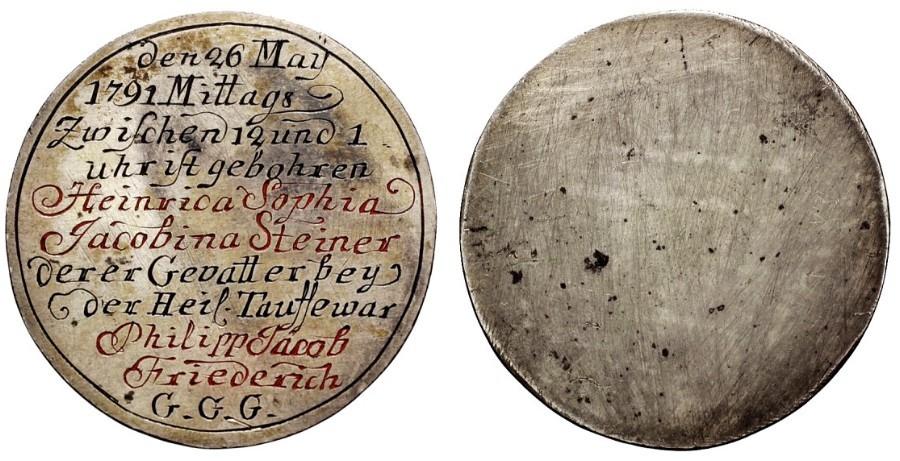 den 26 May
1791 Mittags
Zwischen 12 und 1
uhr ist gebohren
Heinrica Sophia
Jacobina Steiner
derer Gevatter bey
der Heil. Tauffe war
Philipp Jacob
Friederich
G. G. G.